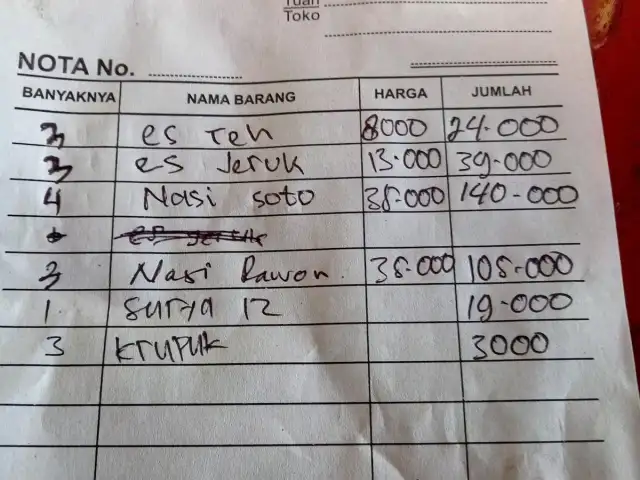 Tuan
Toko
NOTA No.
BANYAKNYA NAMA BARANG HARGA JUMLAH
3 es Teh 8000 24.000
3 es Jeruk 13.000 39.000
4 Nasi soto 35.000 140.000
3 Nasi Rawon. 35.000 105.000
1. Surya 12 19.000
3 Krupuk 3000